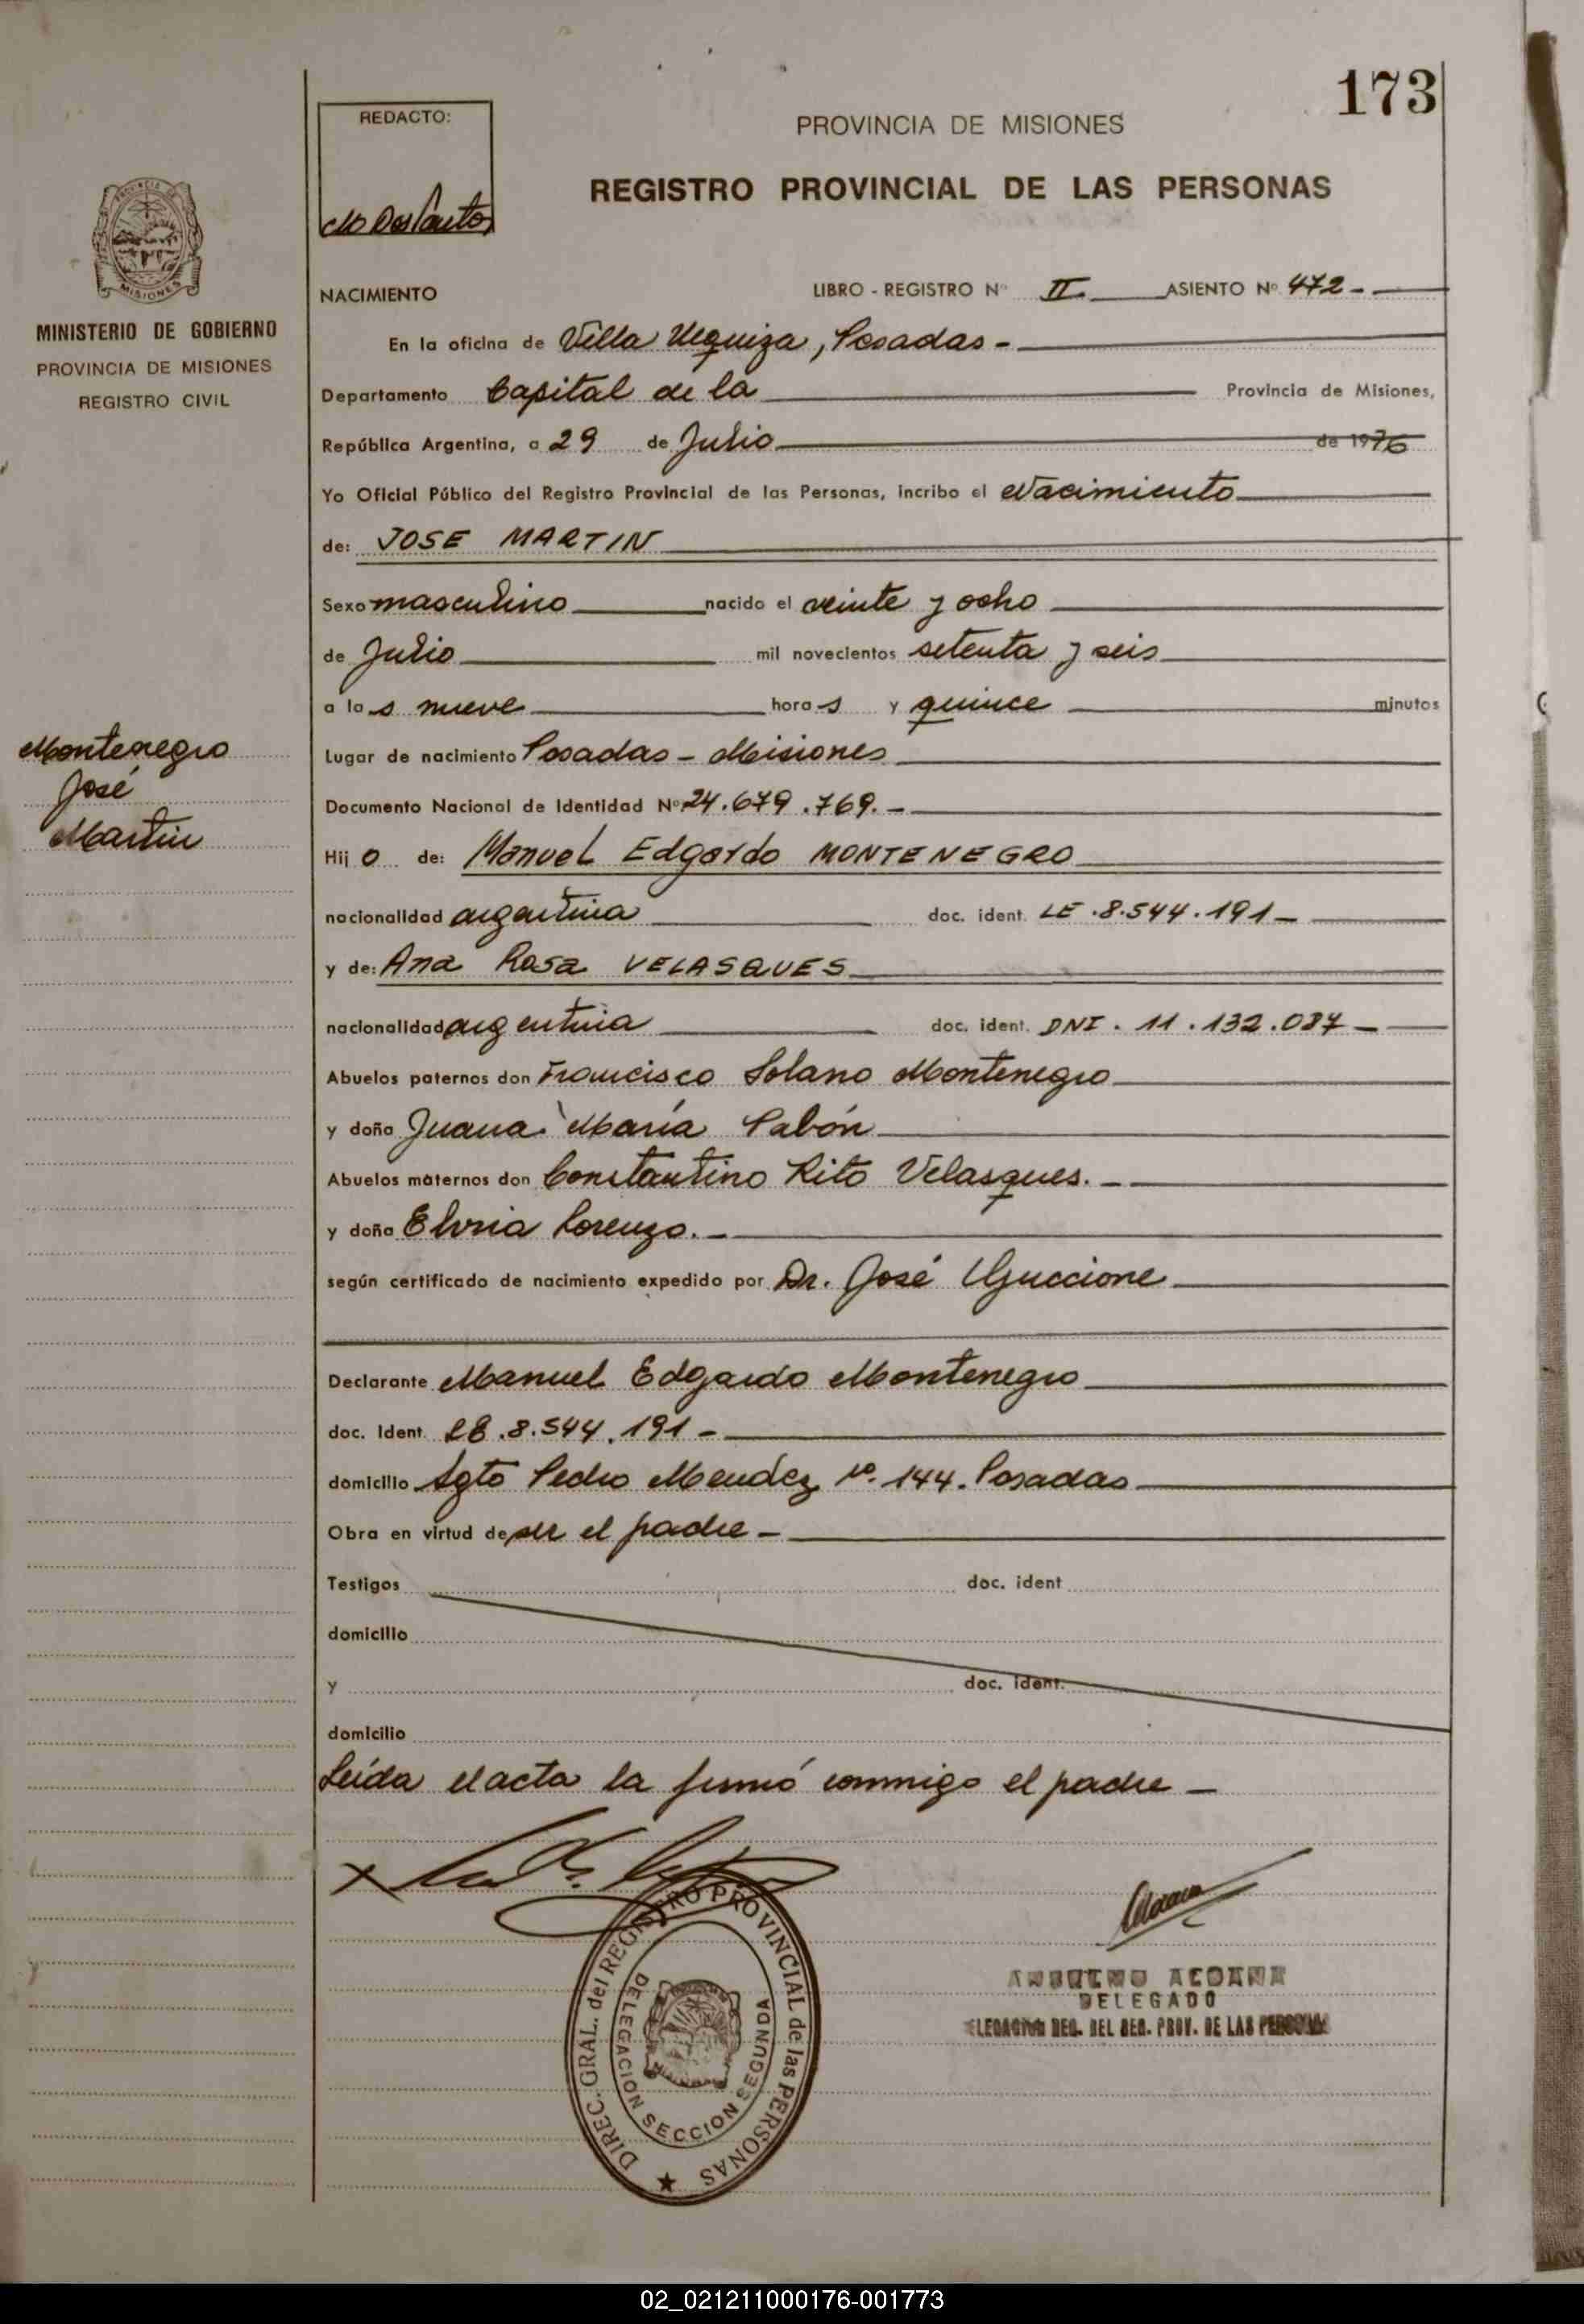 173
REDACTO:
PROVINCIA DE MISIONES
REGISTRO PROVINCIAL DE LAS PERSONAS
MISIONES
MINISTERIO DE GOBIERNO
PROVINCIA DE MISIONES
REGISTRO CIVIL
NACIMIENTO LIBRO - REGISTRO Nº II ASIENTO Nº 472-
En la oficina de Villa Urquiza, Posadas -
Departamento Capital de la Provincia de Misiones,
República Argentina, a 29 de Julio de 1976
Yo Oficial Público del Registro Provincial de las Personas, incribo el Nacimiento
de: JOSE MARTIN
Sexo masculino nacido el veinte y ocho
de Julio mil novecientos setenta y seis
a las nueve horas y quince minutos
Montenegro
José
Martin
Lugar de nacimiento Posadas - Misiones
Documento Nacional de Identidad Nº 24.679.769.-
Hijo de: Manuel Edgardo MONTENEGRO
nacionalidad argentina doc. ident. LE.8.544.191-
y de: Ana Rosa VELASQUES
nacionalidad argentina doc. ident. DNI. 11.132.037-
Abuelos paternos don Francisco Solano Montenegro
y doña Juana María Pabón
Abuelos maternos don Constantino Rito Velasques.-
y doña Elvria Lorenzo.-
según certificado de nacimiento expedido por Dr. José Guccione
Declarante Manuel Edgardo Montenegro
doc. Ident. LE.8.544.191-
domicilio Sgto Pedro Mendez nº. 144. Posadas
Obra en virtud de ser el padre -
Testigos doc. ident
domicilio
y doc. ident.
domicilio
Leída el acta la firmó conmigo el padre -
DIREC. GRAL. del REGISTRO PROVINCIAL de las PERSONAS
DELEGACION SECCION SEGUNDA
DELEGADO
REG. DEL REG. PROV. DE LAS
02_021211000176-001773